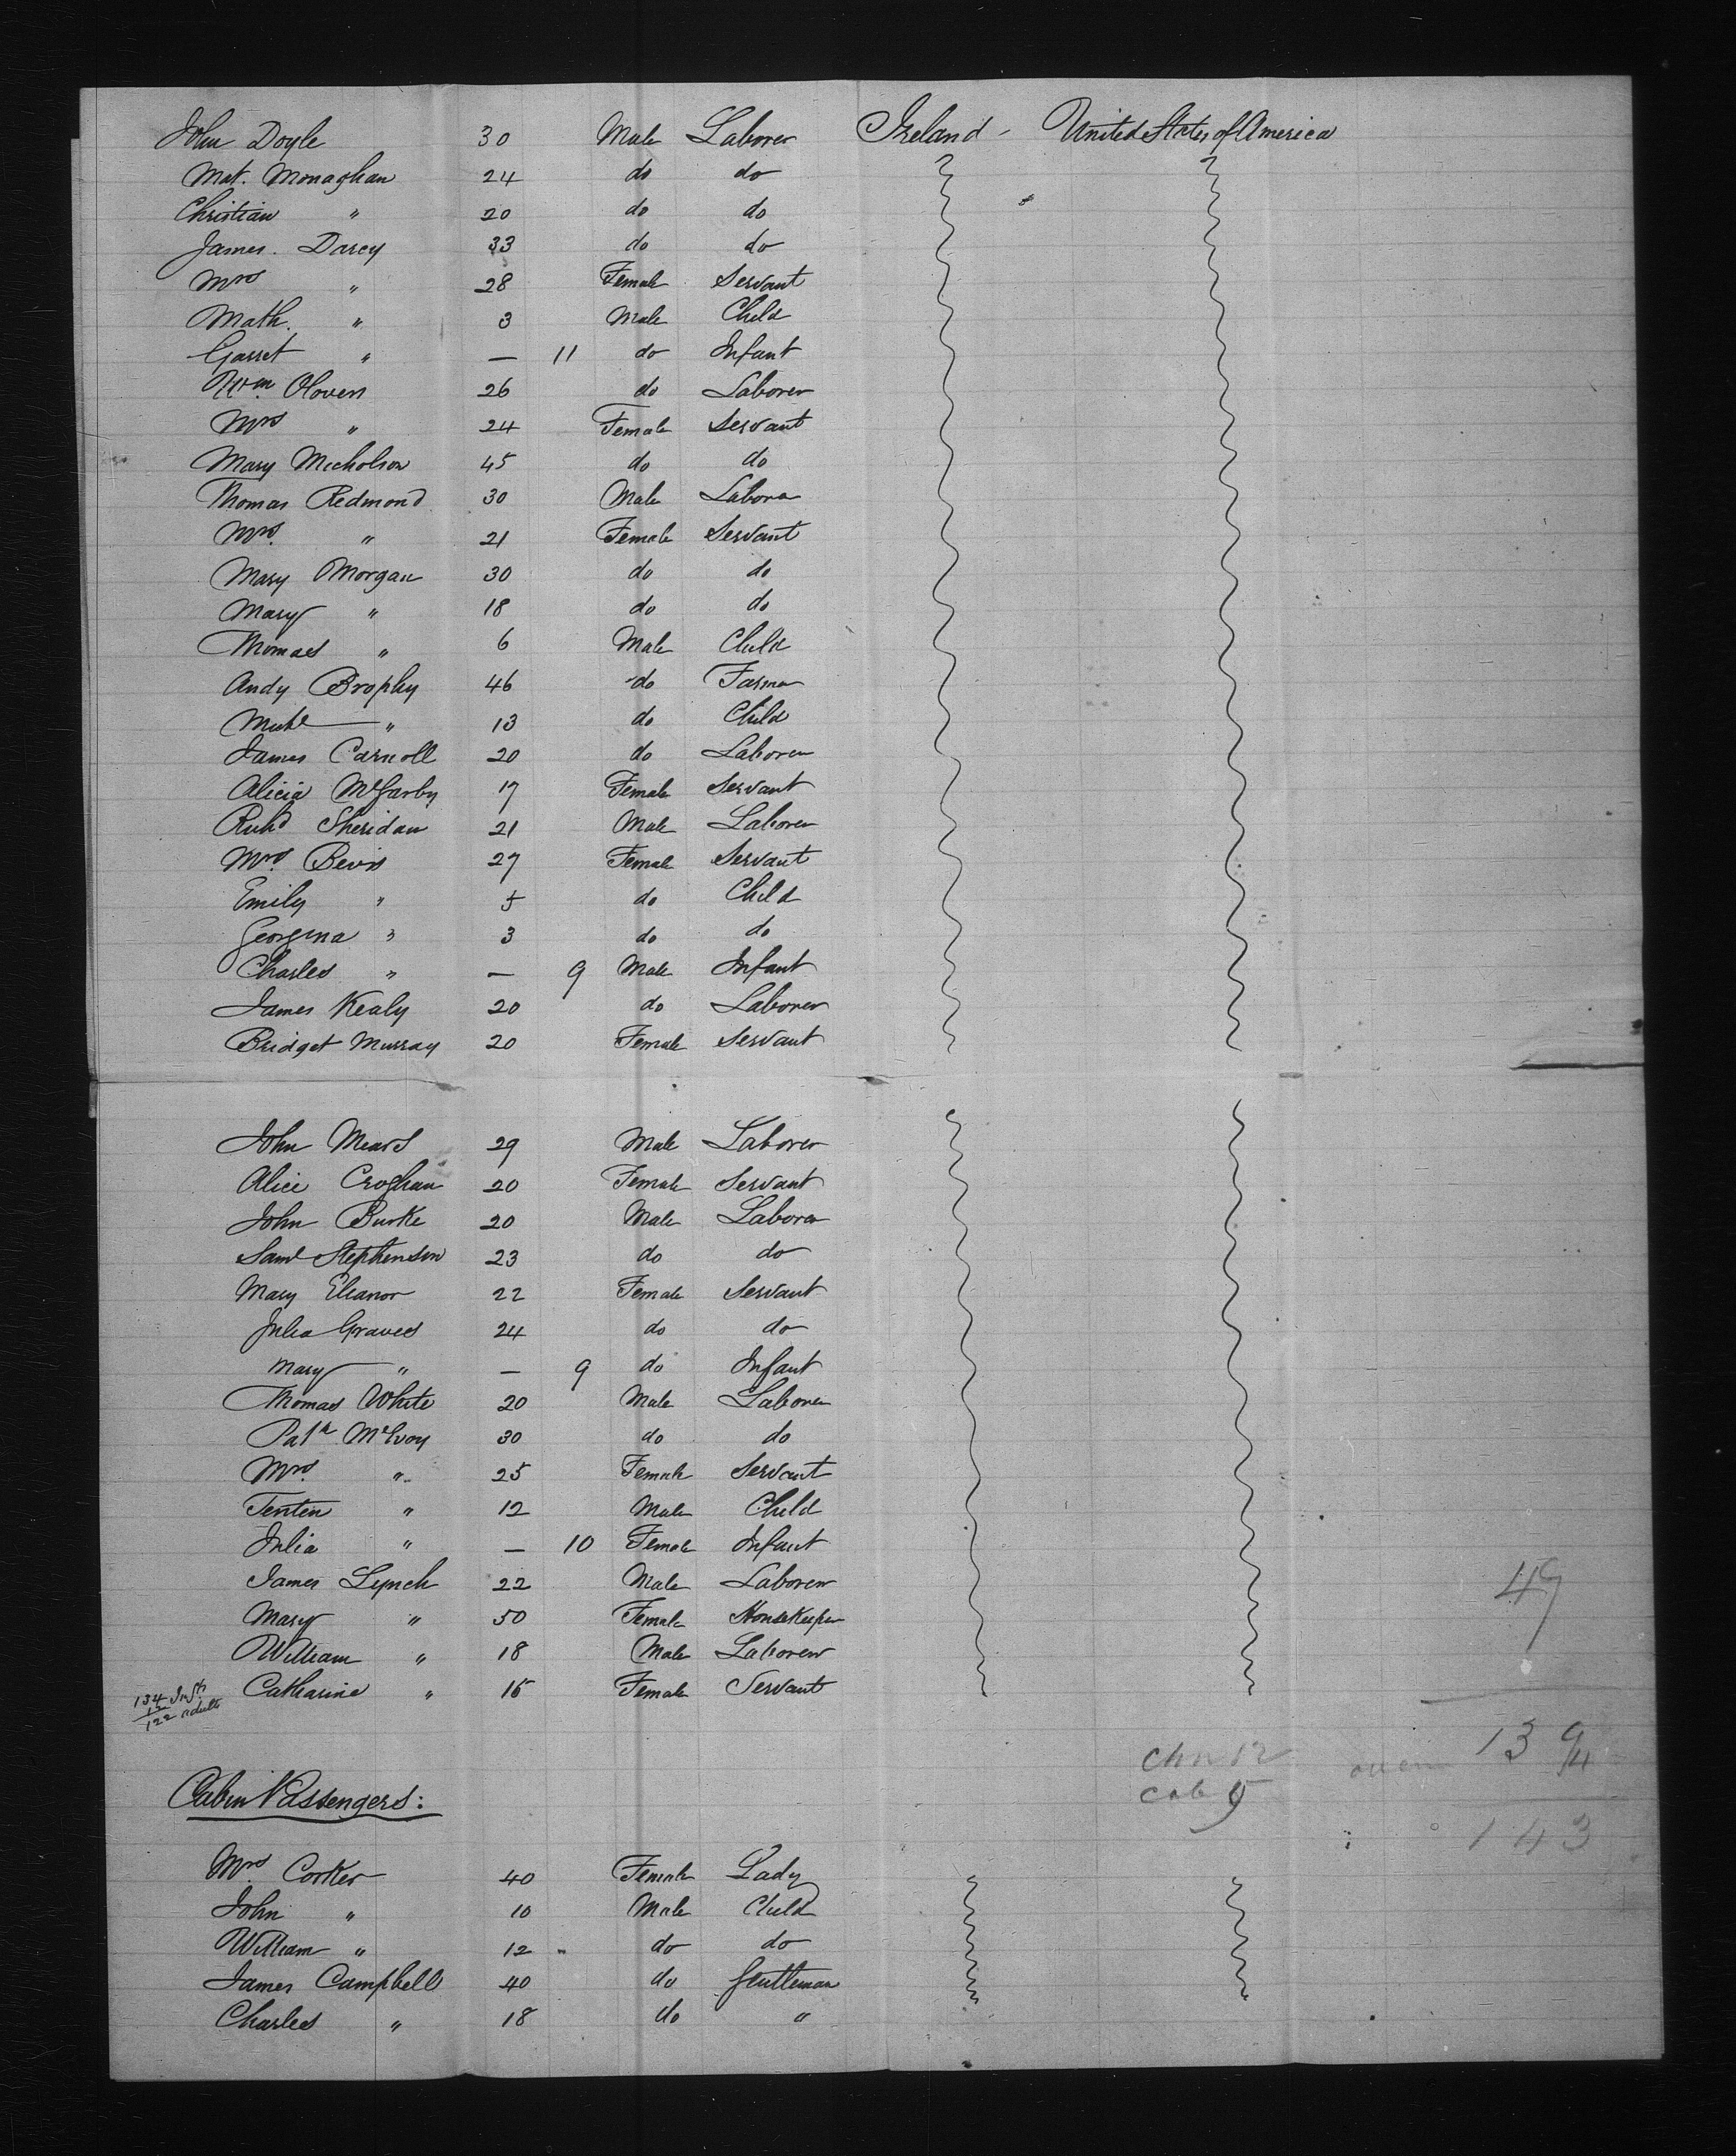 John Doyle 30 Male Laborer Ireland - United States of America
Mat. Monaghan 24 do do
Christian " 20 do do
James. Darcy 33 do do
Mrs " 28 Female Servant
Math. " 3 Male Child
Garret " — 11 do Infant
Wm. Oloven 26 do Laborer
Mrs " 24 Female Servant
Mary Nicholson 45 do do
Thomas Redmond 30 Male Laborer
Mrs. " 21 Female Servant
Mary Morgan 30 do do
Mary " 18 do do
Thomas " 6 Male Child
Andy Brophy 46 do Farmer
Michl " 13 do Child
James Carroll 20 do Laborer
Alicia 17 Female Servant
Richd Sheridan 21 Male Laborer
Mrs. Bevis 27 Female Servant
Emily " 5 do Child
Georgina " 3 do do
Charles " — 9 Male Infant
James Kealy 20 do Laborer
Bridget Murray 20 Female Servant
John Mears 29 Male Laborer
Alice Croghan 20 Female Servant
John Burke 20 Male Laborer
Saml Stephenson 23 do do
Mary Eleanor 22 Female Servant
Julia Graves 24 do do
Mary " — 9 do Infant
Thomas White 20 Male Laborer
Patk McEvoy 30 do do
Mrs. " 25 Female Servant
" 12 Male Child
Julia " — 10 Female Infant
James Lynch 22 Male Laborer
49
Mary " 50 Female Housekeeper
William " 18 Male Laborer
Catharine " 15 Female Servant
134
12
122 adults
139
Cabin Passengers:
143
Mrs. Corker 40 Female Lady
John " 10 Male Child
William " 12 do do
James Campbell 40 do Gentleman
Charles " 18 do "